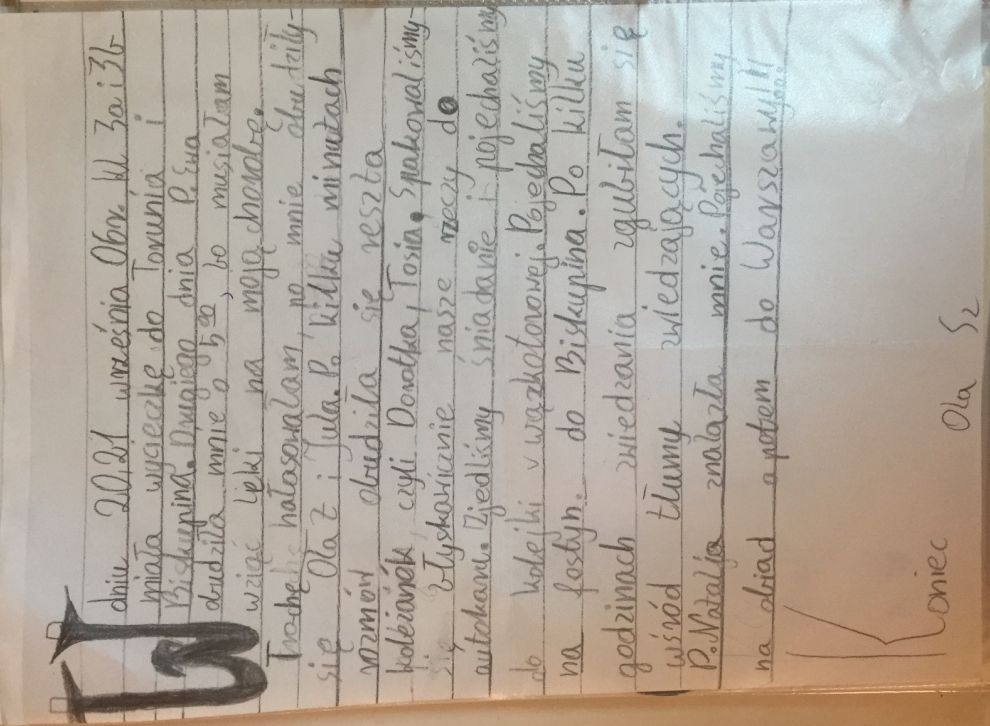 W dniu 20,21 września Obn. kl. 3a i 3b
miała wycieczkę do Torunia i
Biskupina. Drugiego dnia P. Ewa
obudziła mnie o 5 00, bo musiałam
wziąć leki na moją chorobę.
Trochę hałasowałam, po mnie obudziły-
się Ola Z i Jula. Po kilku minutach
rozmów obudziła się reszta
koleżanek, czyli Dorotka, Tosia. Spakowaliśmy-
się błyskawicznie nasze rzeczy do
autokaru. Zjedliśmy śniadanie i pojechaliśmy
do kolejki wązkotorowej. Pojechaliśmy
na festyn do Biskupina. Po kilku
godzinach zwiedzania zgubiłam się
wśród tłumy zwiedzających.
P. Natalja znalazła mnie. Pojechaliśmy
na obiad a potem do Warszawy!!
Koniec Ola Sz